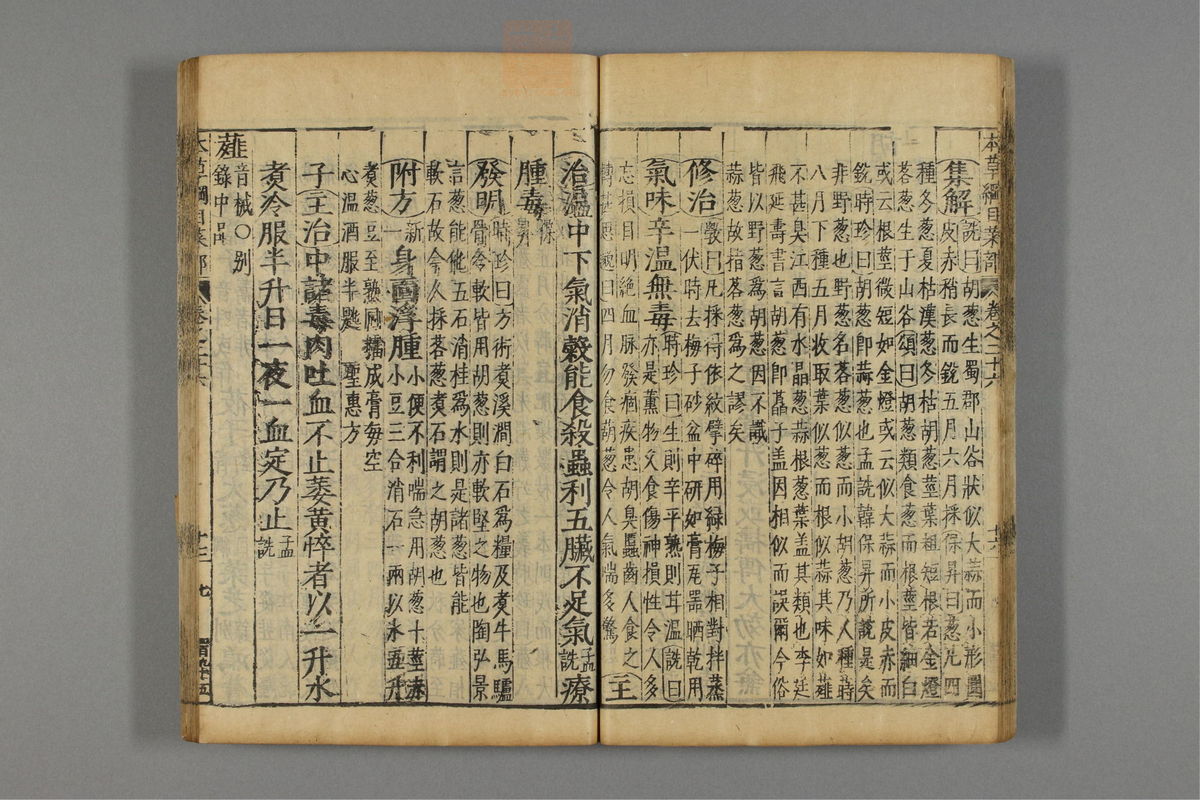 本草綱目菜部 卷之二十六 十六
集解詵曰胡葱生蜀郡山谷狀似大蒜而小形圓
皮赤稍長而銳五月六月採保昇曰葱凡四
種冬葱夏枯漢葱冬枯胡葱莖葉粗短根若金燈
茖葱生于山谷頌曰胡葱類食葱而根莖皆細白
或云根莖微短如金燈或云似大蒜而小皮赤而
銳時珍曰胡葱即蒜葱也孟詵韓保昇所說是矣
非野葱也野葱名茖葱似葱而小胡葱乃人種蒔
八月下種五月收取葉似葱而根似蒜其味如薤
不甚臭江西有水晶葱蒜根葱葉盖其類也李廷
飛延壽書言胡葱即蒚子盖因相似而誤爾今俗
皆以野葱爲胡葱因不識
蒜葱故指茖葱爲之謬矣
修治斅曰凡採得依紋擘碎用緑梅子相對拌蒸
一伏時去梅子砂盆中研如膏瓦器晒乾用
氣味辛溫無毒時珍曰生則辛平熟則甘溫詵曰
亦是薰物久食傷神損性令人多
忘損目明絶血脉發痼疾患胡臭䘌齒人食之
轉甚 曰四月勿食葫葱令人氣喘多驚
主
治溫中下氣消榖能食殺蟲利五臟不足氣孟詵療
腫毒保昇
發明時珍曰方術煮溪澗白石爲糧及煮牛馬驢
骨令軟皆用胡葱則亦軟堅之物也陶弘景
言葱能化五石消桂爲水則是諸葱皆能
軟石故今人採茖葱煮石謂之胡葱也
附方新一身面浮腫小便不利喘急用胡葱十莖赤
小豆三合消石一兩以水五升
煮葱豆至熟同擂成膏每空
心溫酒服半匙 聖惠方
子主治中諸毒肉吐血不止萎黃悴者以一升水
煮冷服半升日一夜一血定乃止孟詵
薤音械○别錄中品
本草綱目菜部 卷之二十六